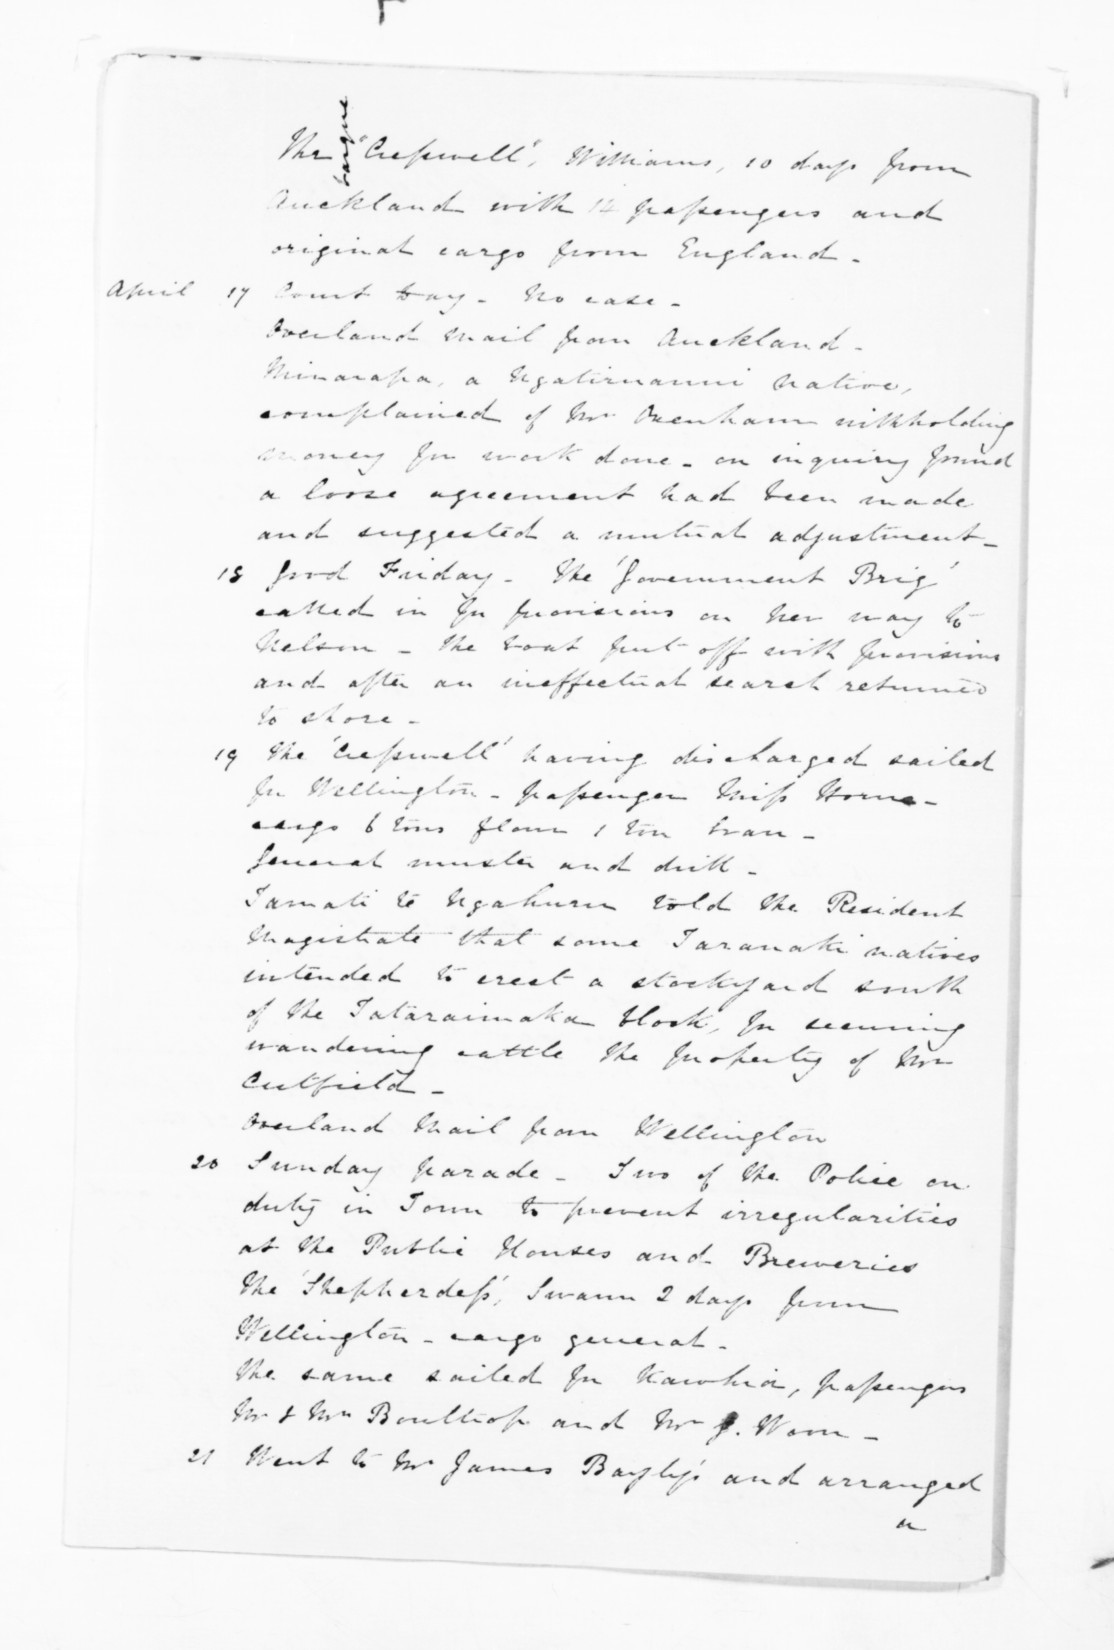 The barque "Cresswell", Williams, 10 days from
Auckland with 12 passengers and
original cargo from England -
April 17 Court day - No case -
Overland mail from Auckland -
Minarapa, a Ngatiruanui native,
complained of Mr Oxenham withholding
money for work done - on inquiry found
a loose agreement had been made
and suggested a mutual adjustment -
18 Good Friday - The 'Government Brig'
called in for provisions on her way to
Nelson - the boat put off with provisions
and after an ineffectual search returned
to shore -
19 The 'Cresswell' having discharged sailed
for Wellington - passenger Miss Horne -
cargo 6 tons flour 1 ton bran -
General muster and drill -
Tamati te Ngahuru told the Resident
Magistrate that some Taranaki natives
intended to erect a stockyard south
of the Tataraimaka block, for securing
wandering cattle the property of Mr
Cutfield -
Overland Mail from Wellington
20 Sunday parade - Two of the Police on
duty in Town to prevent irregularities
at the Public Houses and Breweries
The 'Shepherdess', Swann 2 days from
Wellington - cargo general -
The same sailed for Kawhia, passengers
Mr & Mrs and Mr J. Worn -
21 Went to Mr James Bayly's and arranged
a